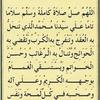 اللهم صل صلاة كاملة وسلم سلاما
تاما على سيدنا محمد الذي تنحل
به العقد وتنفرج به الكرب وتقضى به
الحوائج وتنال به الرغائب وحسن
الخواتم ويستسقى الغمام
بوجهه الكريم وعلى آله
وصحبه في كل لمحة ونفس